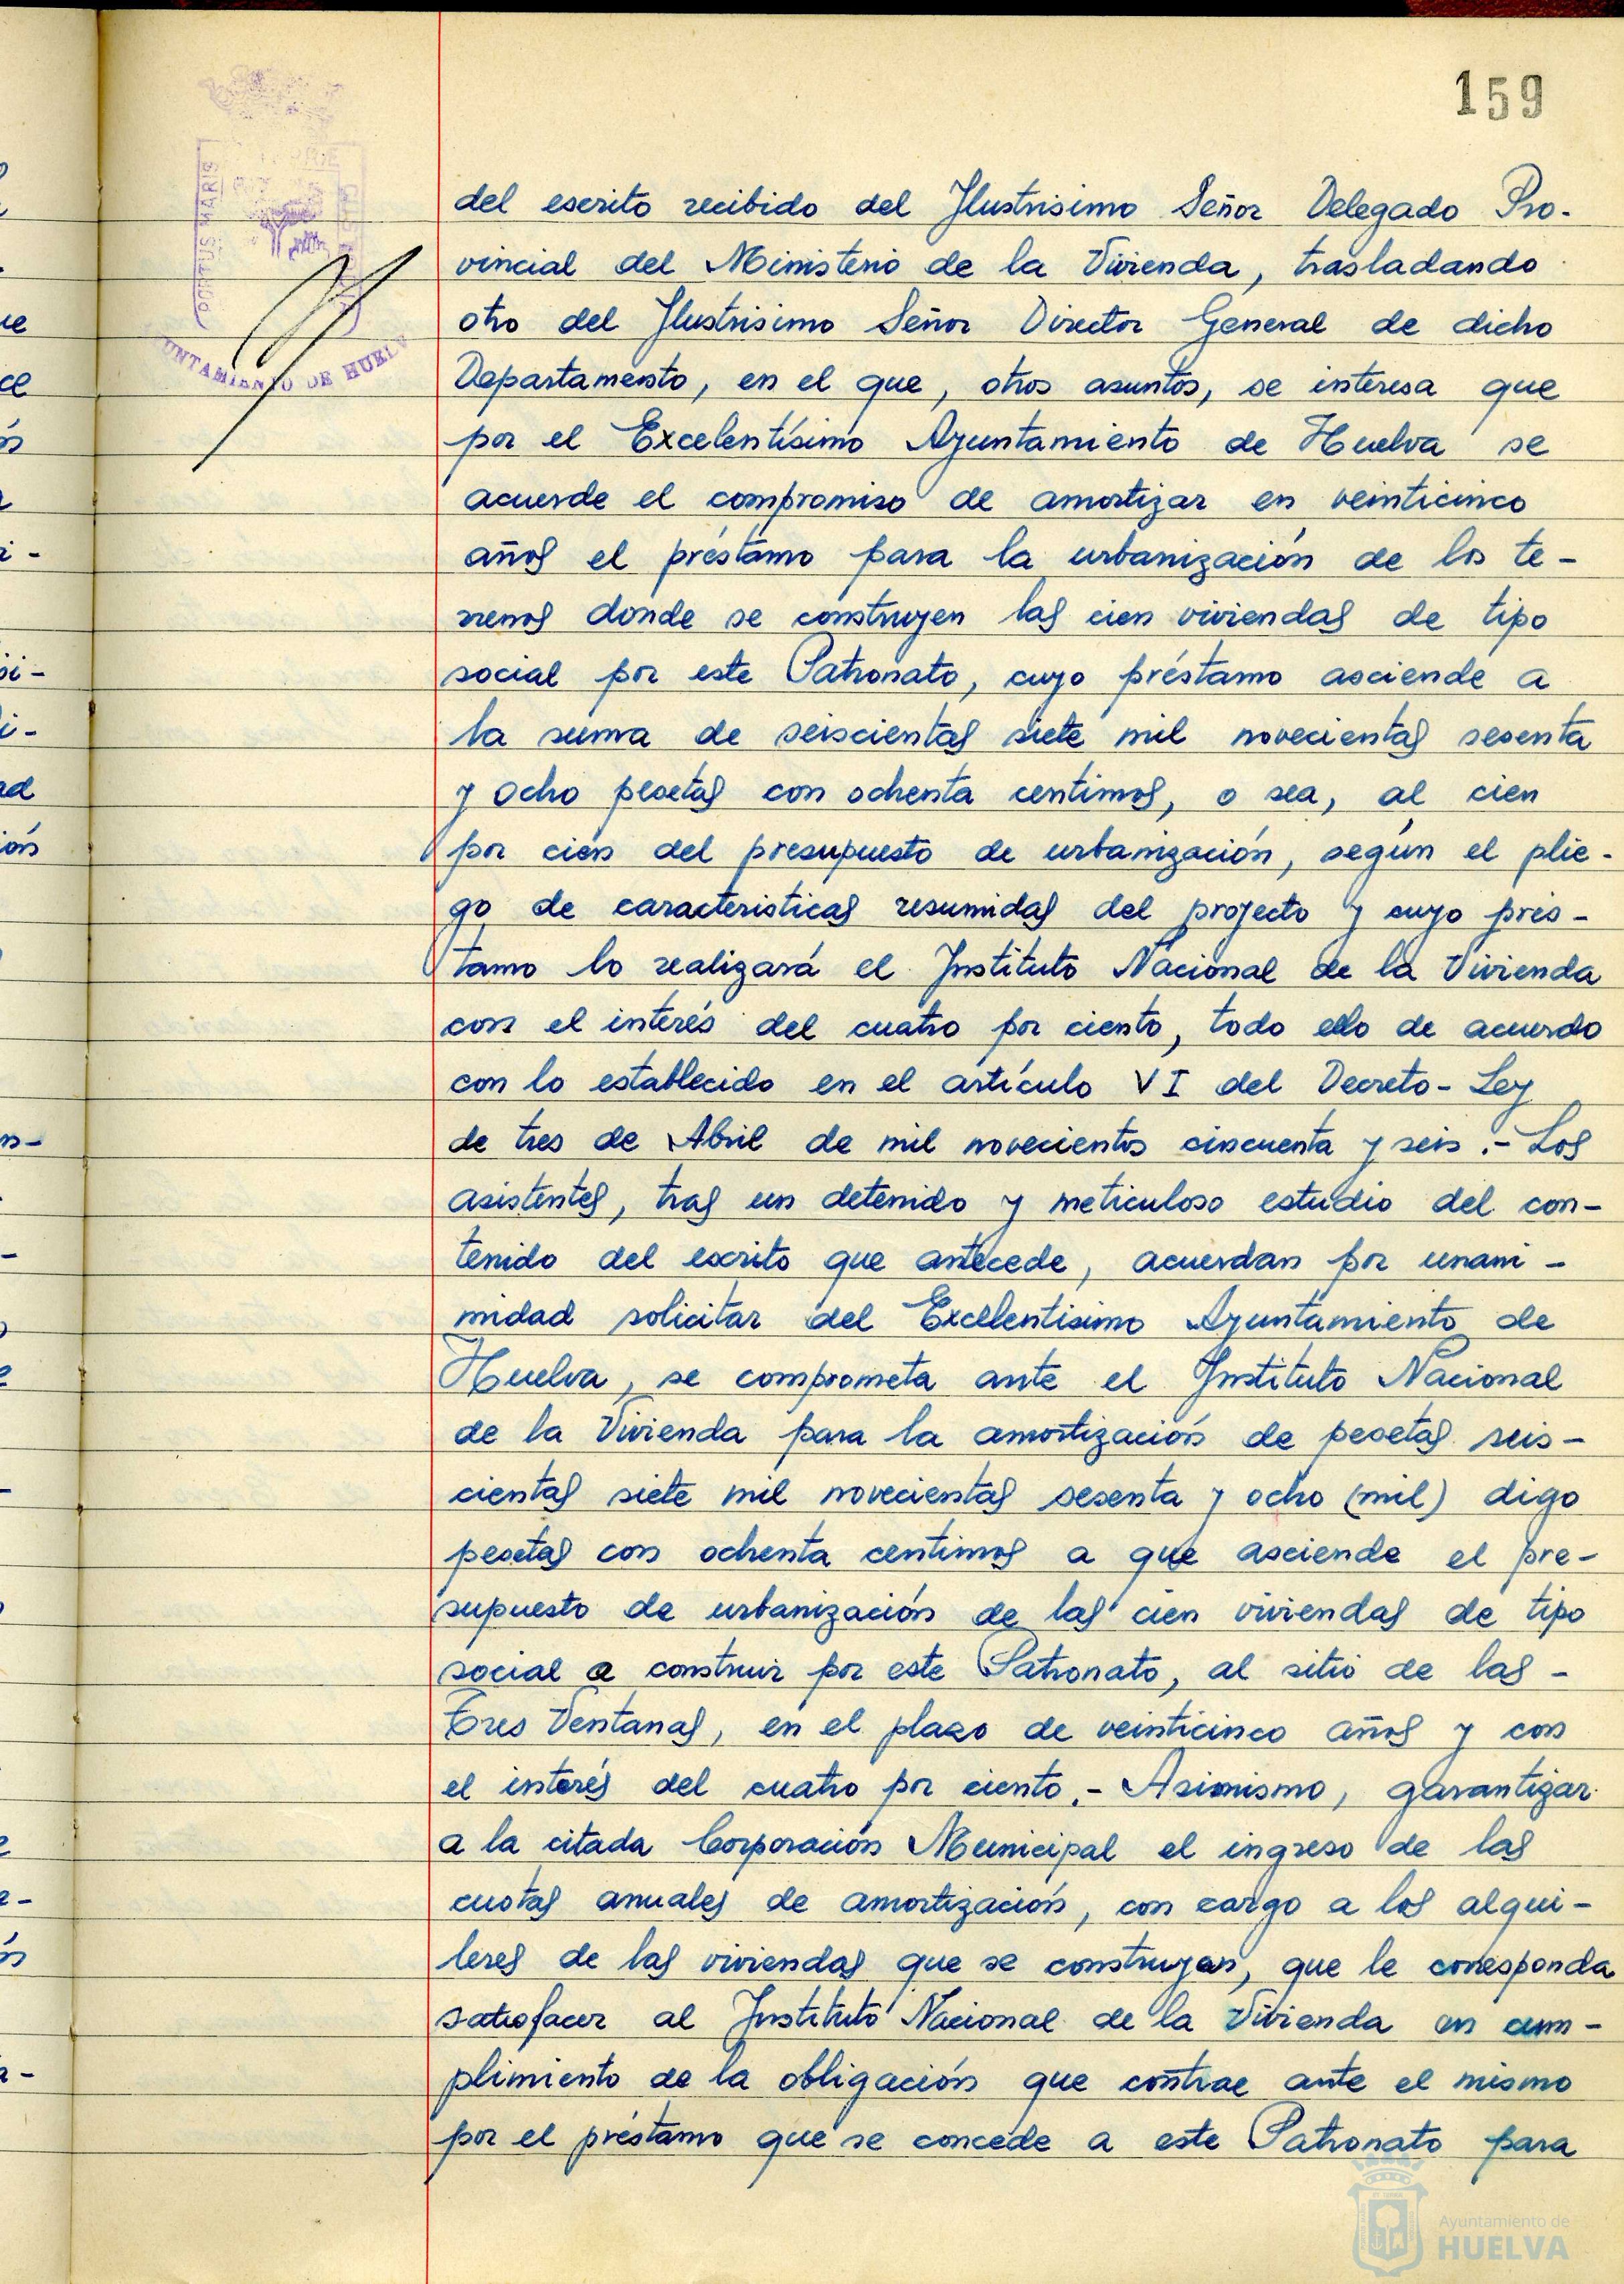 159
PORTUS MARIS
UNTAMIENTO DE HUELV
del escrito recibido del Ilustrisimo Señor Delegado Pro-
vincial del Ministerio de la Vivienda, trasladando
otro del Ilustrisimo Señor Director General de dicho
Departamento, en el que, otros asuntos, se interesa que
por el Excelentísimo Ayuntamiento de Huelva se
acuerde el compromiso de amortizar en veinticinco
años el préstamo para la urbanización de los te-
rrenos donde se construyen las cien viviendas de tipo
social por este Patronato, cuyo préstamo asciende a
la suma de seiscientas siete mil novecientas sesenta
y ocho pesetas con ochenta centimos, o sea, al cien
por cien del presupuesto de urbanización, según el plie-
go de caracteristicas resumidas del proyecto y cuyo prés-
tamo lo realizará el Instituto Nacional de la Vivienda
con el interés del cuatro por ciento, todo ello de acuerdo
con lo establecido en el artículo VI del Decreto-Ley
de tres de Abril de mil novecientos cincuenta y seis.- Los
asistentes, tras un detenido y meticuloso estudio del con-
tenido del escrito que antecede, acuerdan por unani-
midad solicitar del Excelentisimo Ayuntamiento de
Huelva, se comprometa ante el Instituto Nacional
de la Vivienda para la amortización de pesetas seis-
cientas siete mil novecientas sesenta y ocho (mil) digo
pesetas con ochenta centimos a que asciende el pre-
supuesto de urbanización de las cien viviendas de tipo
social a construir por este Patronato, al sitio de las -
Tres Ventanas, en el plazo de veinticinco años y con
el interés del cuatro por ciento.- Asimismo, garantizar
a la citada Corporación Municipal el ingreso de las
cuotas anuales de amortización, con cargo a los alqui-
leres de las viviendas que se construyan, que le corresponda
satisfacer al Instituto Nacional de la Vivienda en cum-
plimiento de la obligación que contrae ante el mismo
por el préstamo que se concede a este Patronato para
Ayuntamiento de
HUELVA